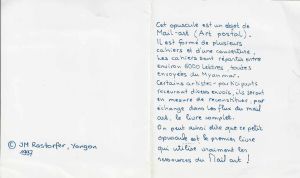 © JM Rastorfer, Yangon
1997
Cet opuscule est un objet de
Mail-art (Art postal).
Il est formé de plusieurs
cahiers et d'une couverture,
Les cahiers sont répartis entre
environ 6000 Lettres, toutes
envoyées du Myanmar.
Certains artistes-participants
recevront divers envois, ils seront
en mesure de reconstituer, par
échange dans les flux du mail
art, le livre complet.
On peut ainsi dire que ce petit
opuscule est le premier livre
qui utilise vraiment les
ressources du Mail art !